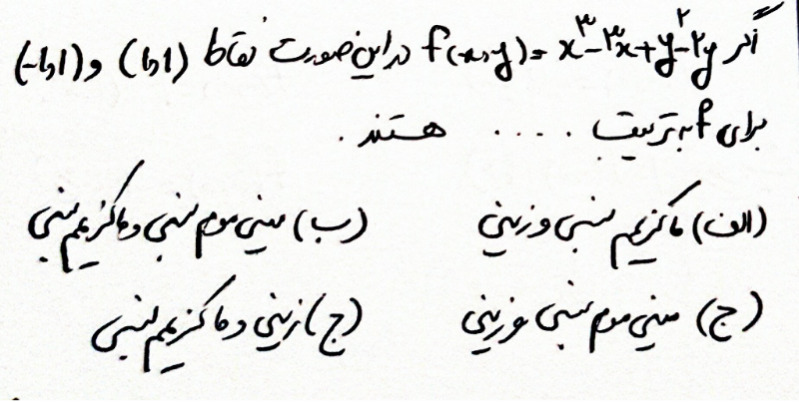 اگر f(x,y) = x³ - ۳x + y² - ۲y در این صورت نقاط (1,1) و (-1,1)
برای f به ترتیب .... هستند.
الف) ماکزیمم نسبی و زینی
ب) مینی موم نسبی و ماکزیمم نسبی
ج) مینی موم نسبی و زینی
ج) زینی و ماکزیمم نسبی